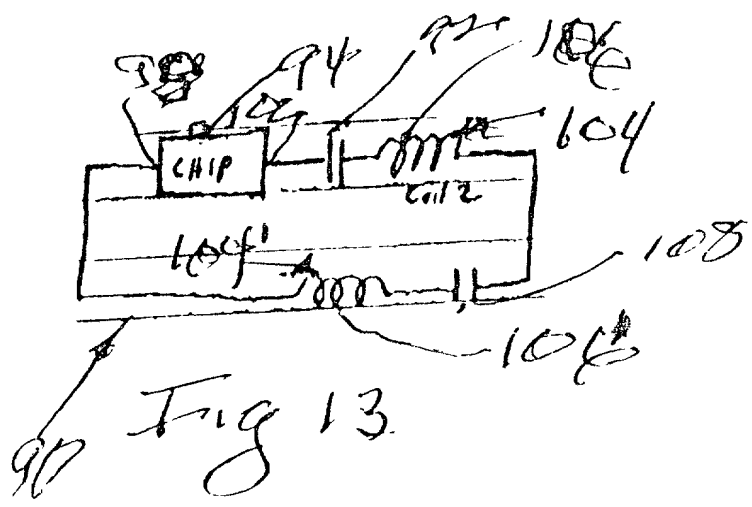 98 94 92 106
100
CHIP
104
Coil 2
104'
108
106'
90
Fig 13.